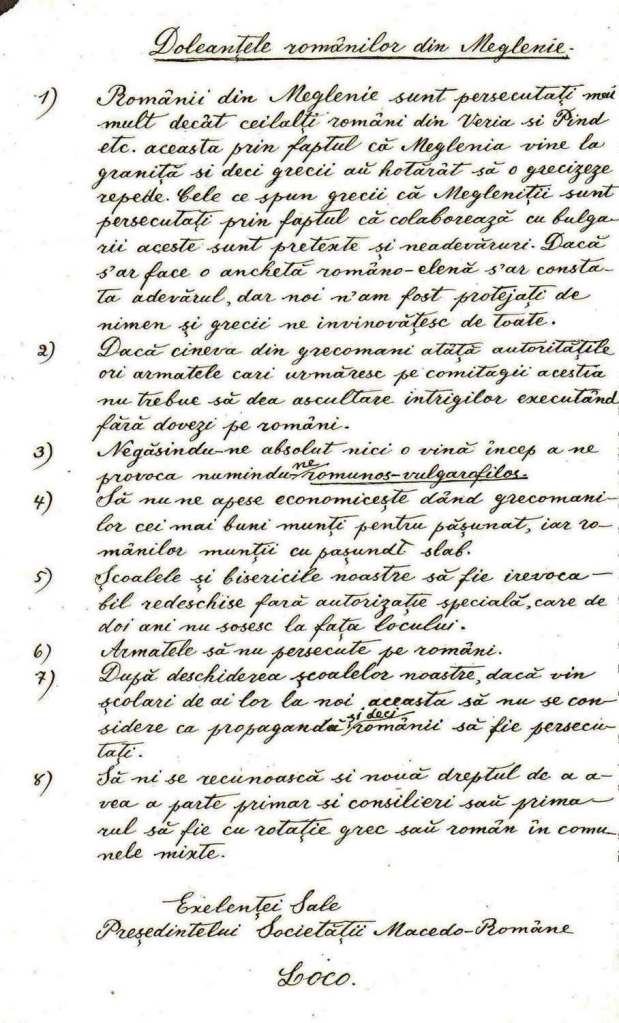 Doleanțele românilor din Meglenie.
1) Românii din Meglenie sunt persecutați mai
mult decât ceilalți români din Veria si Pind
etc. aceasta prin faptul că Meglenia vine la
graniță si deci grecii aŭ hotărât să o grecizeze
repede. Cele ce spun grecii că Megleniții sunt
persecutați prin faptul că colaborează cu bulga-
rii aceste sunt pretexte și neadevăruri. Dacă
s'ar face o anchetă româno-elenă s'ar consta-
ta adevărul, dar noi n'am fost protejați de
nimen și grecii ne invinovățesc de toate.
2) Dacă cineva din grecomani atâță autoritățile
ori armatele cari urmăresc pe comitagii acestia
nu trebue să dea ascultare intrigilor executând
fără dovezi pe români.
3) Negăsindu-ne absolut nici o vină încep a ne
provoca numindu-ne romunos-vulgarofilos.
4) Să nu ne apese economicește dând grecomani-
lor cei mai buni munți pentru pășunat, iar ro-
mânilor munții cu pașunat slab.
5) Școalele și bisericile noastre să fie irevoca-
bil redeschise fară autorizație specială, care de
doi ani nu sosesc la fața locului.
6) Armatele să nu persecute pe români.
7) După deschiderea școalelor noastre, dacă vin
școlari de ai lor la noi aceasta să nu se con-
sidere ca propagandă și deci românii să fie persecu-
tați.
8) Să ni se recunoască si nouă dreptul de a a-
vea a parte primar si consilieri saŭ prima-
rul să fie cu rotație grec saŭ român în comu-
nele mixte.
Exelenței Sale
Președintelui Societății Macedo-Române
Loco.